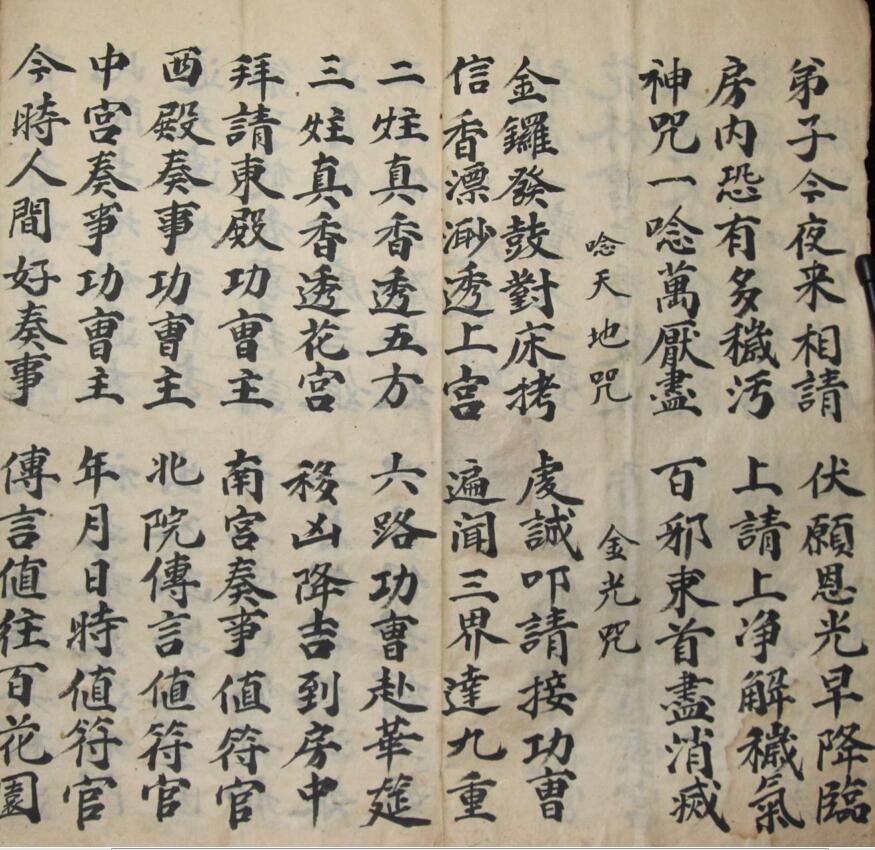 弟子今夜来相請 伏願恩光早降臨
房内恐有多穢污 上請上净解穢氣
神咒一唸萬厭盡 百邪束首盡消滅
唸天地咒 金光咒
金鑼發鼓對床拷 虔誠叩請接功曺
信香漂渺透上宮 遍闻三界達九重
二炷真香透五方 六路功曺赴華筵
三炷真香透花宮 移凶降吉到房中
拜請東殿功曺主 南宮奏事值符官
西殿奏事功曺主 北院傳言值符官
中宮奏事功曺主 年月日時值符官
今時人間好奏事 傳言值往百花園